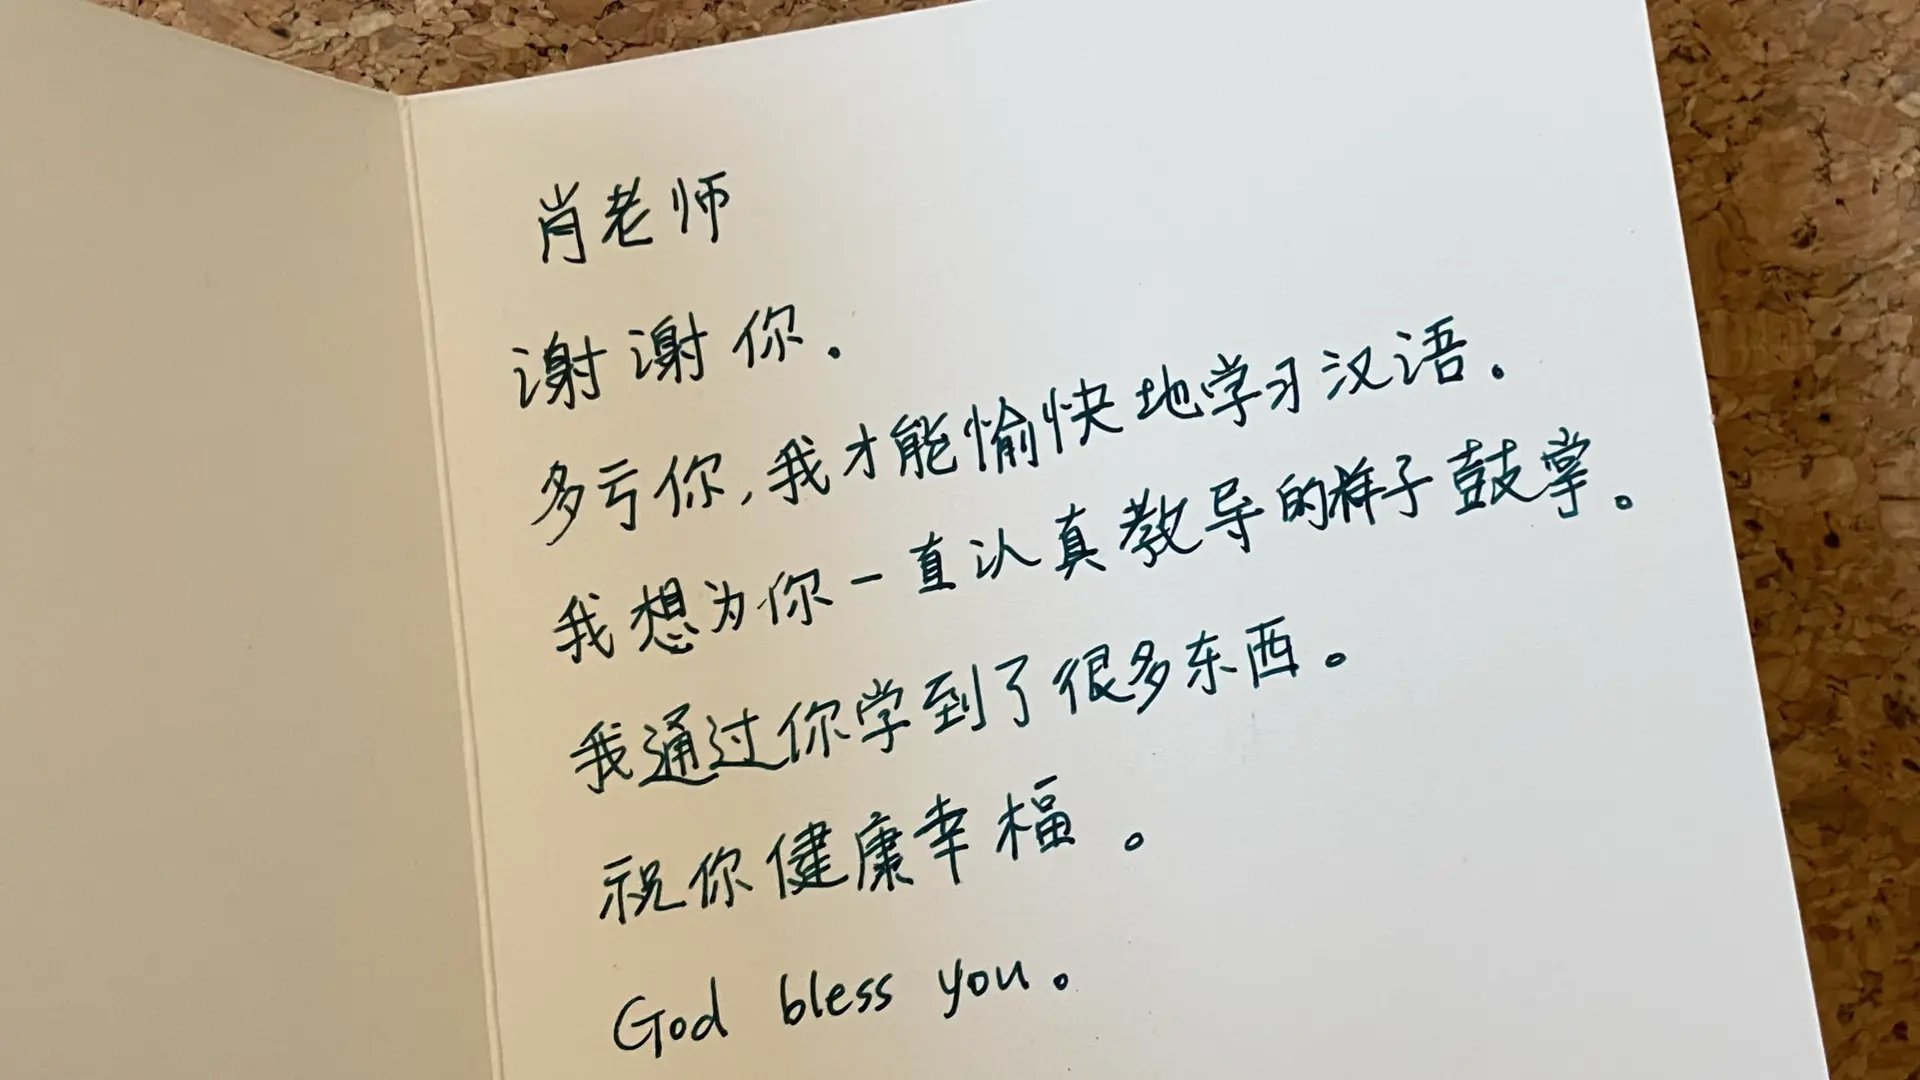 肖老师
谢谢你.
多亏你,我才能愉快地学习汉语.
我想为你一直认真教导的样子鼓掌。
我通过你学到了很多东西。
祝你健康幸福。
God bless you。